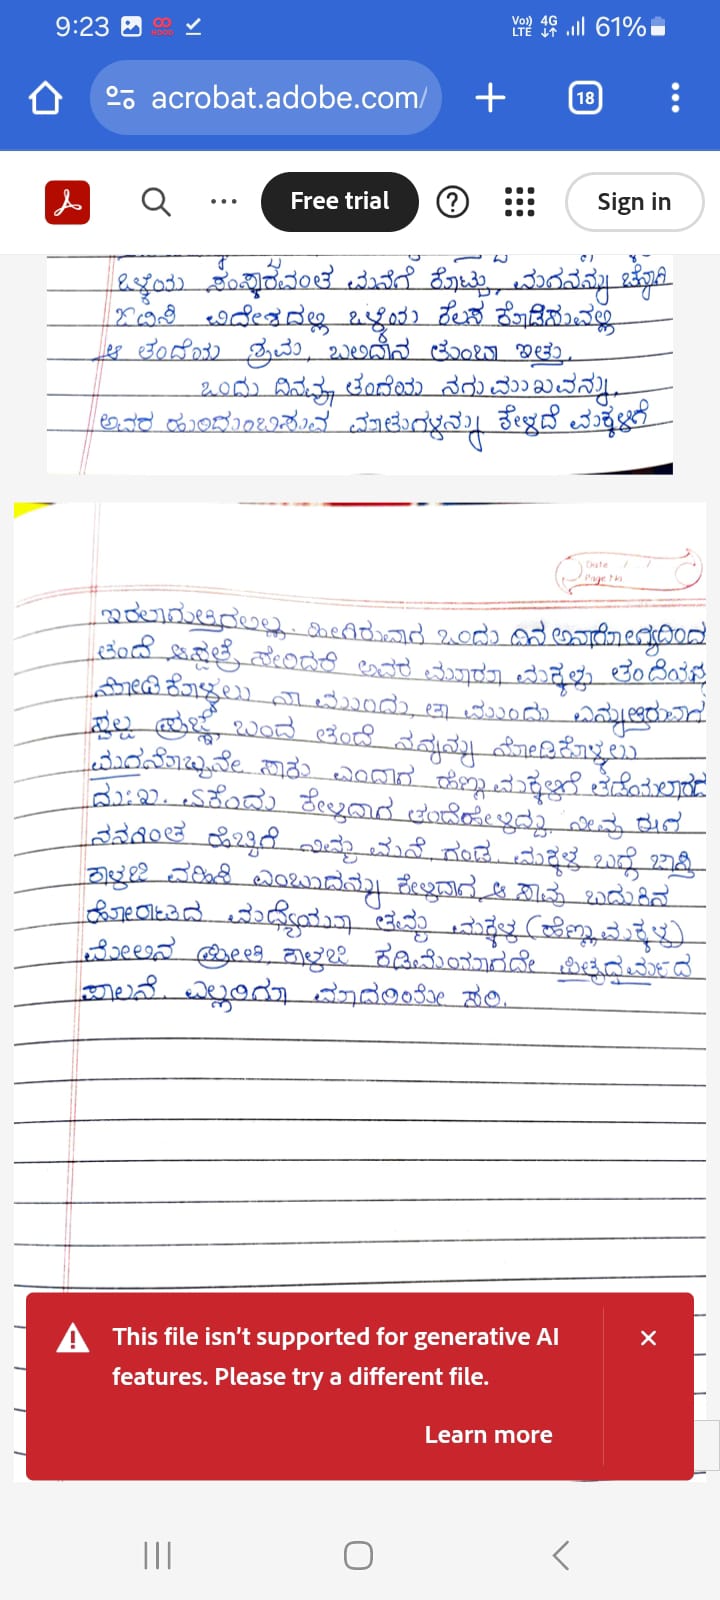 9:23
Vo)) LTE 4G 61%
acrobat.adobe.com/
18
Free trial
Sign in
ಒಳ್ಳೆಯ ಸಂಸ್ಕಾರವಂತ ಮನೆಗೆ ಕೊಟ್ಟು, ಮಗನನ್ನು ಚೆನ್ನಾಗಿ
ಓದಿಸಿ ವಿದೇಶದಲ್ಲಿ ಒಳ್ಳೆಯ ಕೆಲಸ ಕೊಡಿಸುವಲ್ಲಿ
ಆ ತಂದೆಯ ಶ್ರಮ, ಬಲಿದಾನ ತುಂಬಾ ಇತ್ತು.
ಒಂದು ದಿನವೂ ತಂದೆಯ ನಗು ಮುಖವನ್ನು,
ಅವರ ಹುರಿದುಂಬಿಸುವ ಮಾತುಗಳನ್ನು ಕೇಳದೆ ಮಕ್ಕಳಿಗೆ
Date / /
Page No
ಇರಲಾಗುತ್ತಿರಲಿಲ್ಲ. ಹೀಗಿರುವಾಗ ಒಂದು ದಿನ ಅನಾರೋಗ್ಯದಿಂದ
ತಂದೆ ಆಸ್ಪತ್ರೆ ಸೇರಿದರೆ ಅವರ ಮೂರೂ ಮಕ್ಕಳು ತಂದೆಯನ್ನ
ನೋಡಿಕೊಳ್ಳಲು ನಾ ಮುಂದು, ತಾ ಮುಂದು ಎನ್ನುತ್ತಿರುವಾಗ
ಸ್ವಲ್ಪ ಎಚ್ಚೆ ಬಂದ ತಂದೆ ನನ್ನನ್ನು ನೋಡಿಕೊಳ್ಳಲು
ಮಗನೊಬ್ಬನೇ ಸಾಕು ಎಂದಾಗ ಹೆಣ್ಣುಮಕ್ಕಳಿಗೆ ತಡೆಯಲಾರದ
ದುಃಖ. ಏಕೆಂದು ಕೇಳಿದಾಗ ತಂದೆಹೇಳಿದ್ದು, ನೀವು ಈಗ
ನನಗಿಂತ ಹೆಚ್ಚಿಗೆ ನಿಮ್ಮ ಮನೆ, ಗಂಡ, ಮಕ್ಕಳ ಬಗ್ಗೆ ಜಾಸ್ತಿ
ಕಾಳಜಿ ವಹಿಸಿ ಎಂಬುದನ್ನು ಕೇಳಿದಾಗ, ಆ ಸಾವು ಬದುಕಿನ
ಹೋರಾಟದ ಮಧ್ಯೆಯೂ ತಮ್ಮ ಮಕ್ಕಳ (ಹೆಣ್ಣುಮಕ್ಕಳ)
ಮೇಲಿನ ಪ್ರೀತಿ, ಕಾಳಜಿ ಕಡಿಮೆಯಾಗದೇ ಪಿತೃಧರ್ಮದ
ಪಾಲನೆ ಎಲ್ಲರಿಗೂ ಮಾದರಿಯೇ ಸರಿ.
This file isn't supported for generative AI
features. Please try a different file.
Learn more